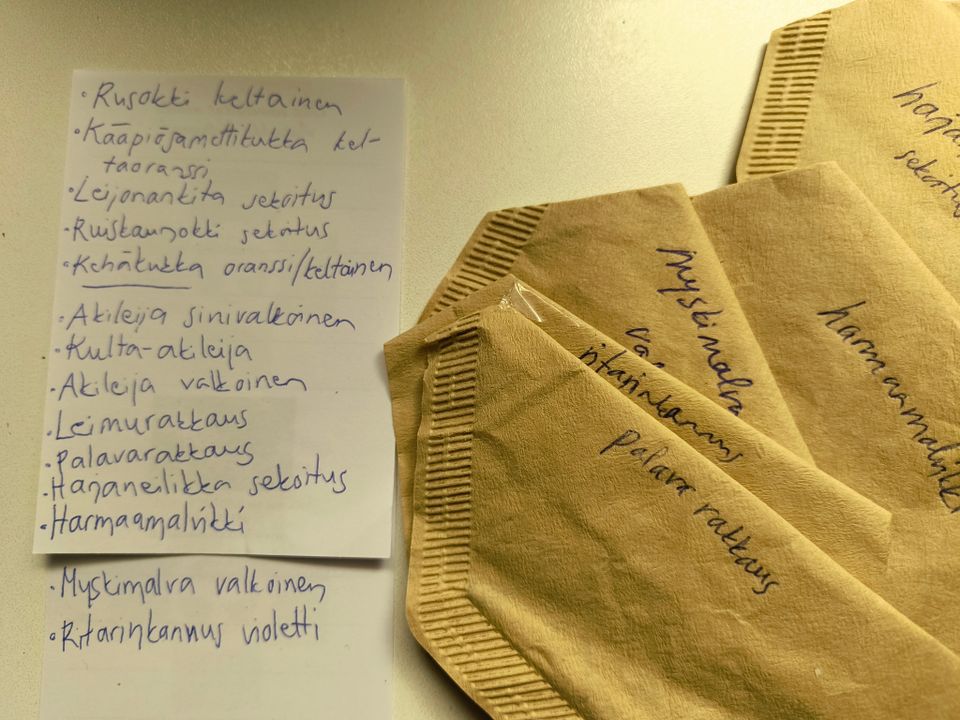 • Rusokki keltainen
• Kääpiösamettikukka kel-
taoranssi
• Leijonankita sekoitus
• Ruiskaunokki sekoitus
• Kehäkukka oranssi/keltainen
• Akileija sinivalkoinen
• Kulta-akileija
• Akileija valkoinen
• Leimurakkaus
• Palavarakkaus
• Harjaneilikka sekoitus
• Harmaamalvikki
• Myskimalva valkoinen
• Ritarinkannus violetti
sekoitus
harmaamalvikki
myskimalva
ritarinkannus
palava rakkaus